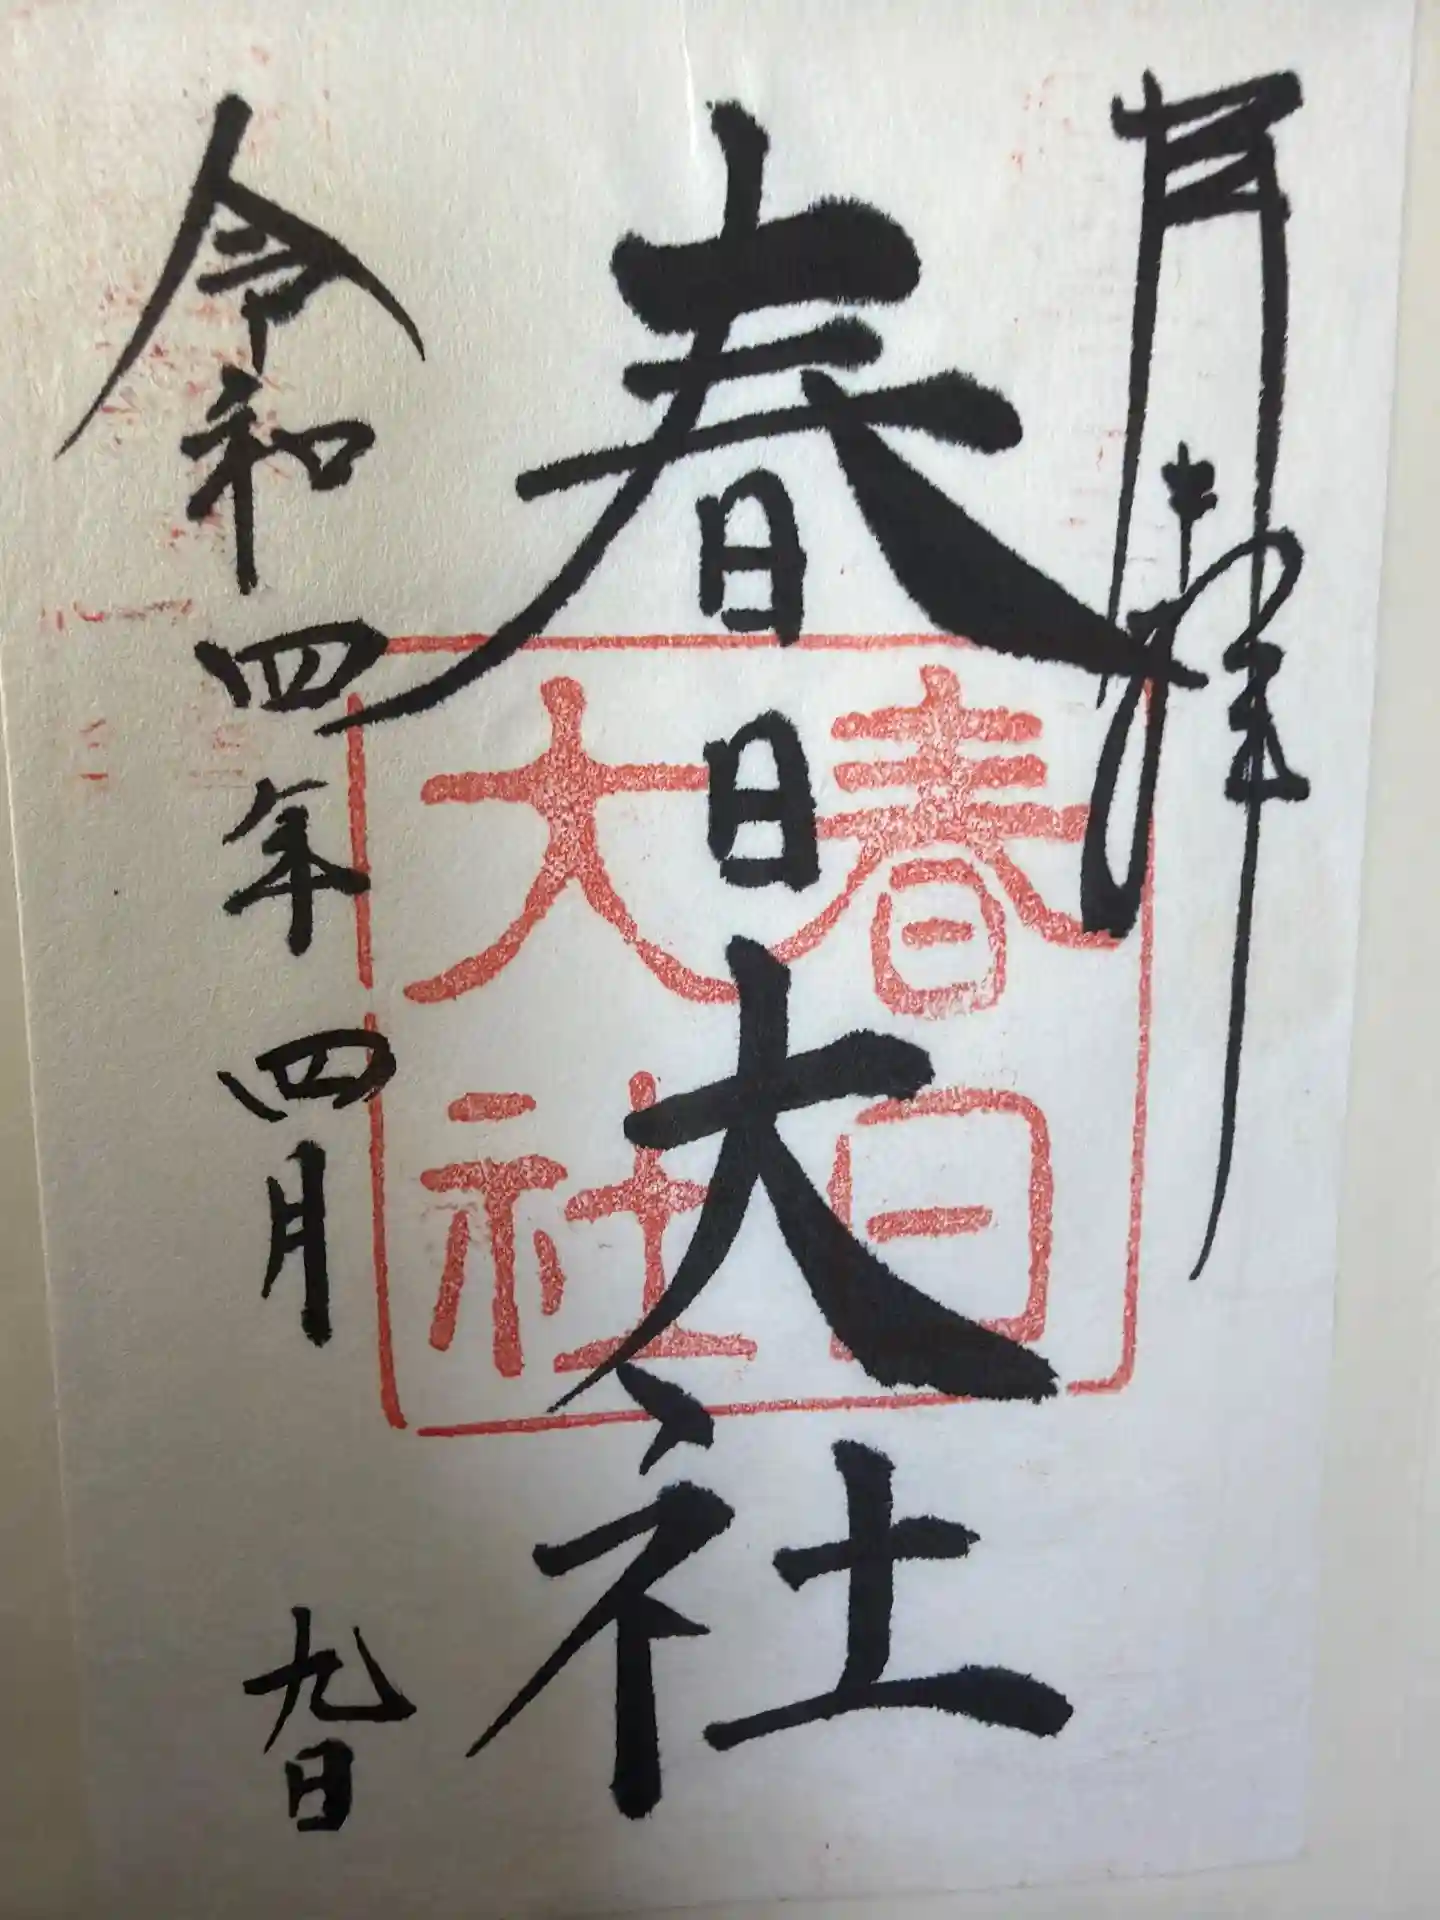 拝
春日大社
令和四年四月九日
春日
大社